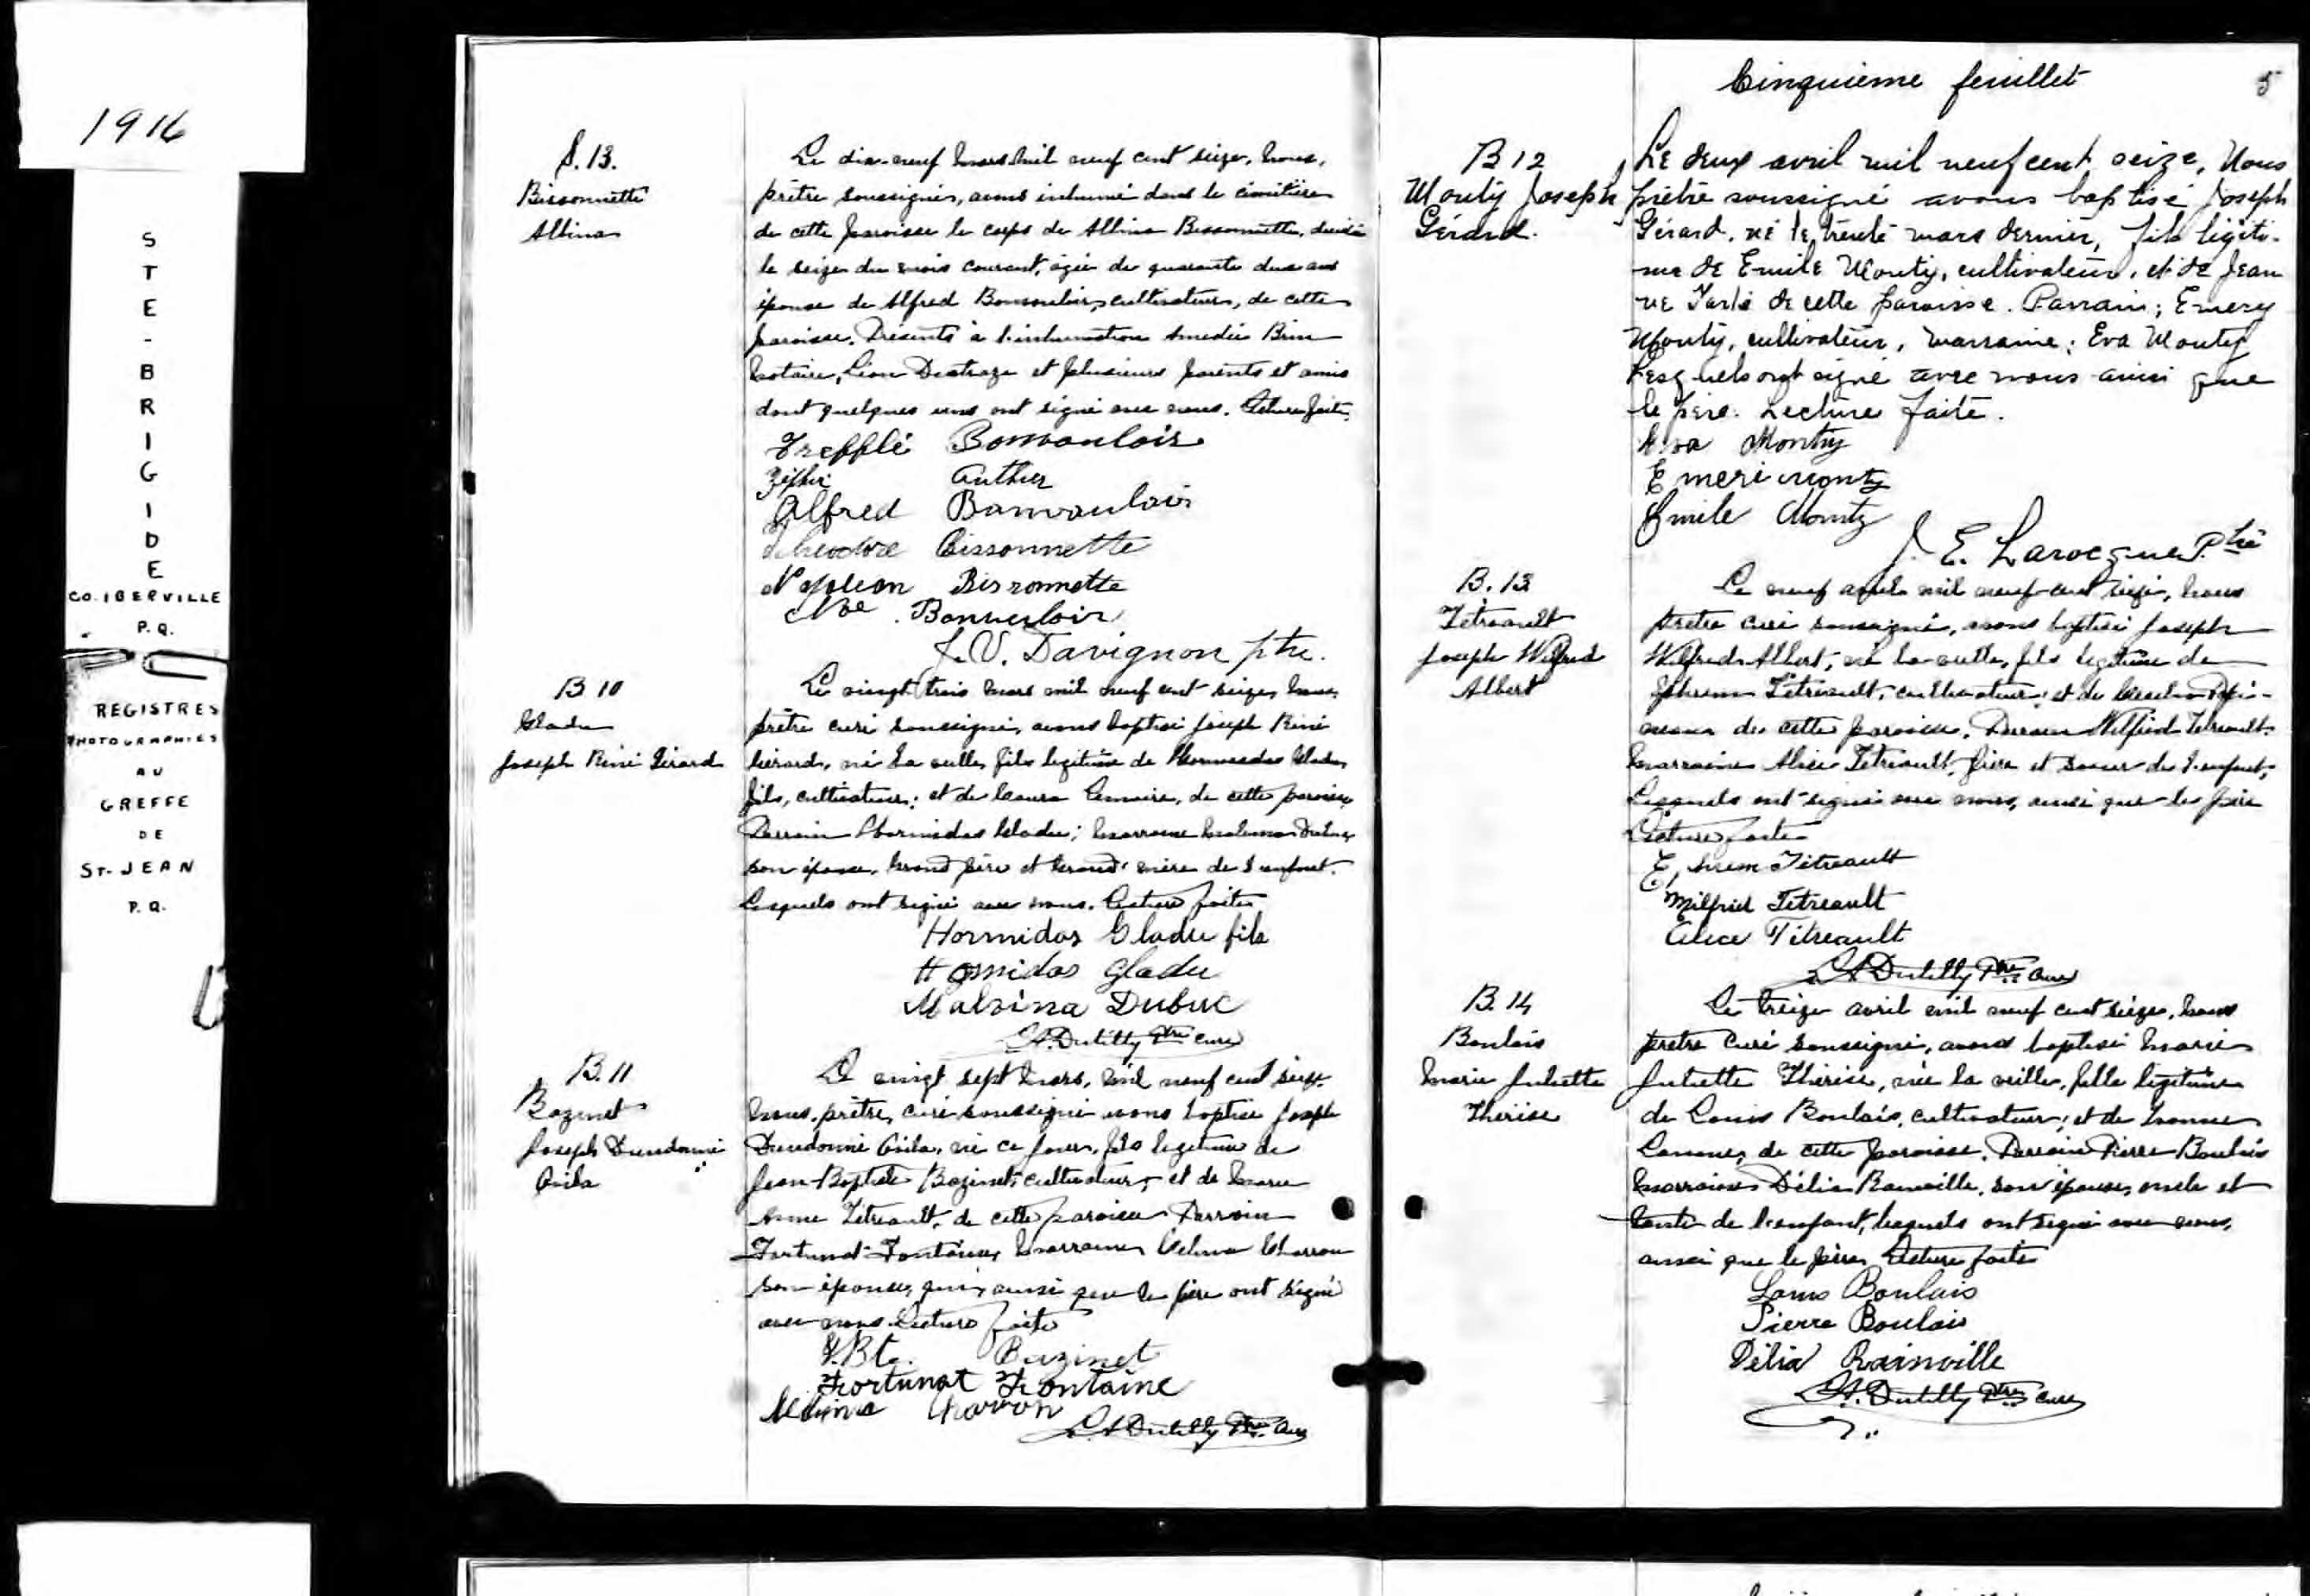 1916
STE-BRIGIDE
CO. IBERVILLE
P.Q.
REGISTRES
PHOTOGRAPHIES
AU
GREFFE
DE
ST-JEAN
P.Q.
S. 13.
Bissonnette
Albina
Le dix-neuf mars mil neuf cent seize, nous,
prêtre soussigné, avons inhumé dans le cimetière
de cette paroisse le corps de Albina Bissonnette, décédée
le seize du mois courant, âgée de quarante deux ans
épouse de Alfred Bonvouloir, cultivateur, de cette
paroisse. Présents à l'inhumation Amedée Brin
notaire, Léon Dextraze et plusieurs parents et amis
dont quelques uns ont signé avec nous. Lecture faite.
Trefflé Bonvouloir
Zéphir Authier
Alfred Bonvouloir
Theodore Bissonnette
Napoleon Bissonnette
Bonvouloir
J. V. Davignon ptre.
B 10
Gladu
Joseph Réné Gérard
Le vingt trois mars mil neuf cent seize, nous,
prêtre curé soussigné, avons baptisé Joseph Réné
Gérard, né la veille, fils légitime de Hormisdas Gladu
fils, cultivateur; et de Laura Lemaire, de cette paroisse
Parrain Hormisdas Gladu; marraine Malvina Dubuc,
son épouse, Grand père et Grand' mère de l'enfant.
Lesquels ont signé avec nous. Lecture faite
Hormidas Gladu fils
Homidas Gladu
Malvina Dubuc
L.A. Dutilly Ptre curé
B. 11
Bazinet
Joseph Dieudonné
Avila
Le vingt sept mars, mil neuf cent seize.
nous, prêtre, curé soussigné avons baptisé Joseph
Dieudonné Avila, né ce jour, fils légitime de
Jean-Baptiste Bazinet, cultivateur, et de Marie
Anne Tétreault, de cette paroisse Parrain
Fortunat Fontaine, marraine Charron
son épouse, qui, ainsi que le père ont signé
avec nous. Lecture faite
J. Bte. Bazinet
Fortunat Fontaine
Charron
L. A Dutilly Ptre. curé
Cinquième feuillet
5
B 12
Monty Joseph
Gérard.
Le deux avril mil neuf cent seize, Nous
prêtre soussigné avons baptisé Joseph
Gérard, né le trente mars dernier, fils légiti-
me de Emile Monty, cultivateur, et de Jean
ne Tarte de cette paroisse. Parrain; Emery
Monty, cultivateur, marraine; Eva Monty
Lesquels ont signé avec nous ainsi que
le père. Lecture faite.
Eva Monty
Emeri Monty
Emile Monty
J. E. Larocque Ptre
B. 13
Tétreault
Joseph Wilfred
Albert
Le neuf avril mil neuf cent seize, nous
prêtre curé soussigné, avons baptisé Joseph
Wilfred Albert, né la veille, fils légitime de
Ephrem Tétreault, cultivateur; et de
de cette paroisse. Parrain Wilfrid Tétreault.
marraine Alice Tétreault, frère et soeur de l'enfant,
Lesquels ont signé avec nous, ainsi que le père
Lecture faite
Ephrem Tétreault
Wilfrid Tetreault
Alice Tétreault
L A Dutilly Ptre curé
B. 14
Boulais
Marie Juliette
Thérèse
Le treize avril mil neuf cent seize, nous
prêtre curé soussigné, avons baptisé Marie
Juliette Thérèse, née la veille, fille légitime
de Louis Boulais, cultivateur; et de
de cette paroisse. Parrain Pierre Boulais
marraine Délia Rainville, son épouse, oncle et
tante de l'enfant, lesquels ont signé avec nous,
ainsi que le père, Lecture faite
Louis Boulais
Pierre Boulais
Délia Rainville
L. A. Dutilly Ptre curé